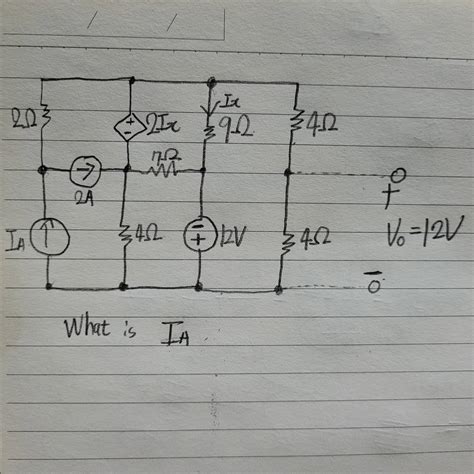 Ix
2Ω
+
-
2Ix
9Ω
4Ω
7Ω
2A
+
IA
4Ω
-
+
12V
4Ω
Vo = 12V
-
What is IA